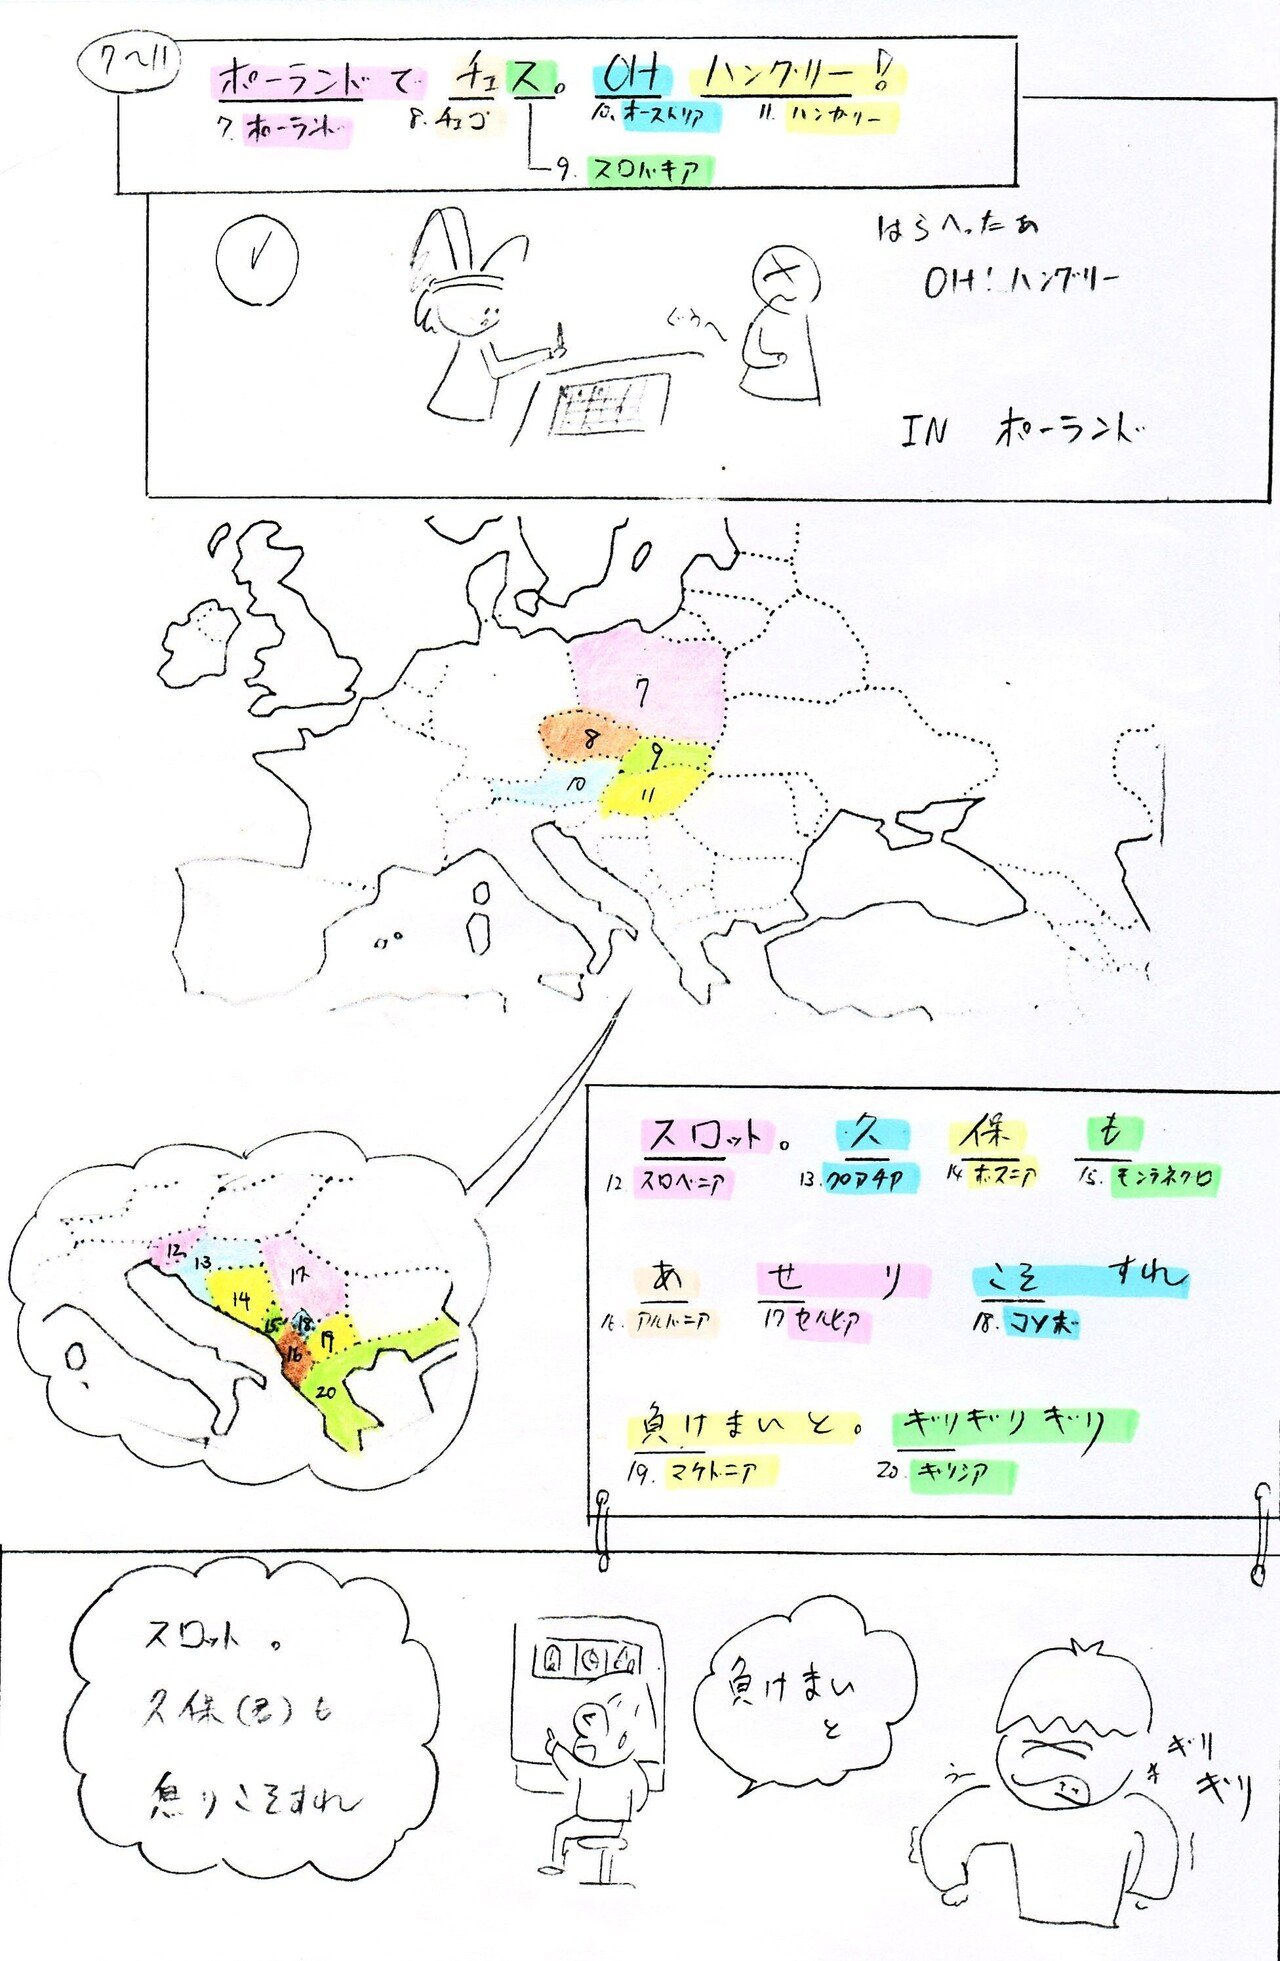 7~11
ポーランドで チェス。 OH ハングリー!
7. ポーランド 8. チェコ 10. オーストリア 11. ハンガリー
9. スロバキア
はらへったぁ
OH! ハングリー
ぐぅ〜
IN ポーランド
7
8
9
10
11
スロット。 久 保 も
12 スロベニア 13. クロアチア 14 ボスニア 15. モンテネグロ
あ せ り こそ すれ
16. アルバニア 17 セルビア 18. コソボ
負けまいと。 ギリギリギリ
19. マケドニア 20. ギリシア
12
13
14
17
15
18
16
19
20
スロット。
久保(君)も
焦りこそすれ
負けまい
と
ギリ
ギリ